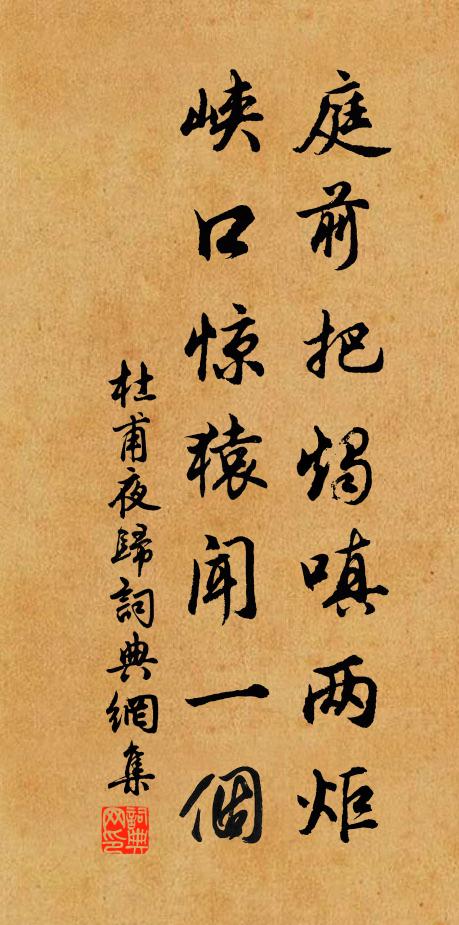 庭前把燭嗔两炬
峡口惊猿闻一個
杜甫夜歸詞典網集
詞典网印